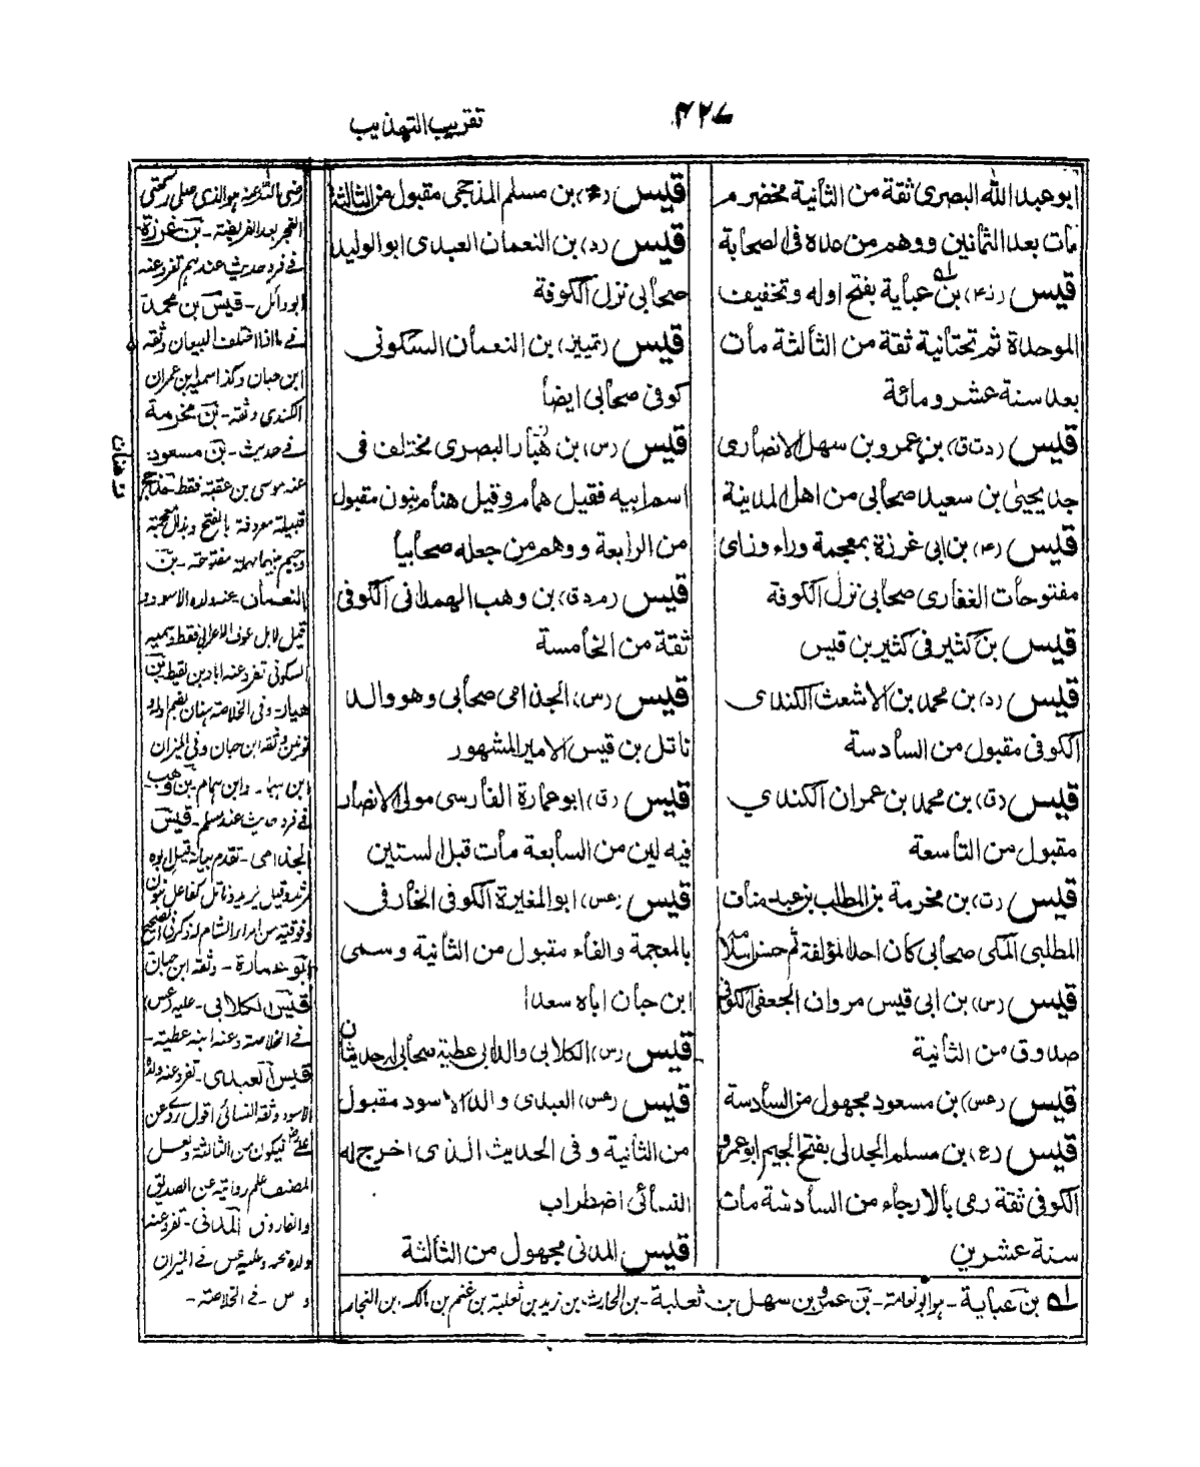 تقريب التهذيب
٤٢٧
ابو عبد الله البصرى ثقة من الثانية مخضرم
مات بعد الثمانين ووهم من عده فى الصحابة
قيس (ز٤) بن عباية بفتح اوله وتخفيف
الموحدة ثم تحتانية ثقة من الثالثة مات
بعد سنة عشر ومائة
قيس (دت ق) بن عمرو بن سهل الانصارى
جد يحيى بن سعيد صحابى من اهل المدينة
قيس (٤) بن ابى غرزة بمعجمة وراء وزاى
مفتوحات الغفارى صحابى نزل الكوفة
قيس بن كثير فى كثير بن قيس
قيس (د) بن محمد بن الاشعث الكندى
الكوفى مقبول من السادسة
قيس (ق) بن محمد بن عمران الكندي
مقبول من التاسعة
قيس (ت) بن مخرمة بن المطلب بن عبد مناف
المطلبى المكى صحابى كان احد المؤلفة ثم حسن اسلامه
قيس (س) بن ابى قيس مروان الجعفى الكوفى
صدوق من الثانية
قيس (عس) بن مسعود مجهول من السادسة
قيس (ع) بن مسلم الجدلى بفتح الجيم ابو عمرو
الكوفى ثقة رمى بالارجاء من السادسة مات
سنة عشرين
قيس بن مسلم المذحجى مقبول من الثالثة
قيس (د) بن النعمان العبدى ابو الوليد
صحابى نزل الكوفة
قيس (تمييز) بن النعمان السكونى
كوفى صحابى ايضا
قيس (س) بن هبار البصرى مختلف فى
اسم ابيه فقيل همام وقيل هنام بنون مقبول
من الرابعة ووهم من جعله صحابيا
قيس (مد ق) بن وهب الهمدانى الكوفى
ثقة من الخامسة
قيس (س) الجذامى صحابى وهو والد
ناتل بن قيس الامير المشهور
قيس (ق) ابو عمارة الفارسى مولى الانصار
فيه لين من السابعة مات قبل الستين
قيس (عس) ابو المغيرة الكوفى الخارفى
بالمعجمة والفاء مقبول من الثانية وسمى
ابن حبان اباه سعدا
قيس (س) الكلابى والد ابى عطية صحابى له حديثان
قيس (س) العبدى والد الاسود مقبول
من الثانية وفى الحديث الذى اخرج له
النسائى اضطراب
قيس المدنى مجهول من الثالثة
رضى الله عنه هو الذى صلى ركعتى
الفجر بعد الفريضة - بن غرزة
فى فرد حديث عندهم تفرد عنه
ابو وائل - قيس بن محمد
فى ما اذا اختلف البيعان وثقه
ابن حبان وكذا سميه ابن عمران
الكندى وثقه - بن مخرمة
فى حديث - بن مسعود
عنه موسى بن عقبة فقط مذحج
قبيلة معروفة بالفتح وبذال معجمة
وجيم بينهما مهملة مفتوحة - بن
النعمان - عنه ولده الاسود و
قيل لا بل عوف الاعرابى فقط وسميه
السكونى تفرد عنه اياد بن لقيط بن
هبار - وفى الخلاصة هنان بضم اوله و
نونين وثقه ابن حبان وفى الميزان
ابن هبار - وابن همام - بن وهب
فى فرد حديث عند مسلم - قيس
الجذامى - تقدم بيانه قيل ابوه
زيد وقيل يزيد وناتل كفاعل بنون
وفوقية من امراء الشام
ابو عمارة - وثقه ابن حبان
قيس الكلابى - عليه (عس)
فى الخلاصة وعنه ابنه عطية -
قيس العبدى - تفرد عنه ولده
الاسود وثقه النسائى اقول روى عن
على فيكون من الثالثة ولعل
المصنف علم روايته عن الصديق
والفاروق المدنى - تفرد عنه
ولده محمد وعليه عس فى الميزان
و س - فى الخلاصة -
له بن عباية - هو ابو نعامة - بن عمرو بن سهل بن ثعلبة - بن الحارث بن زيد بن ثعلبة بن غنم بن مالك بن النجار